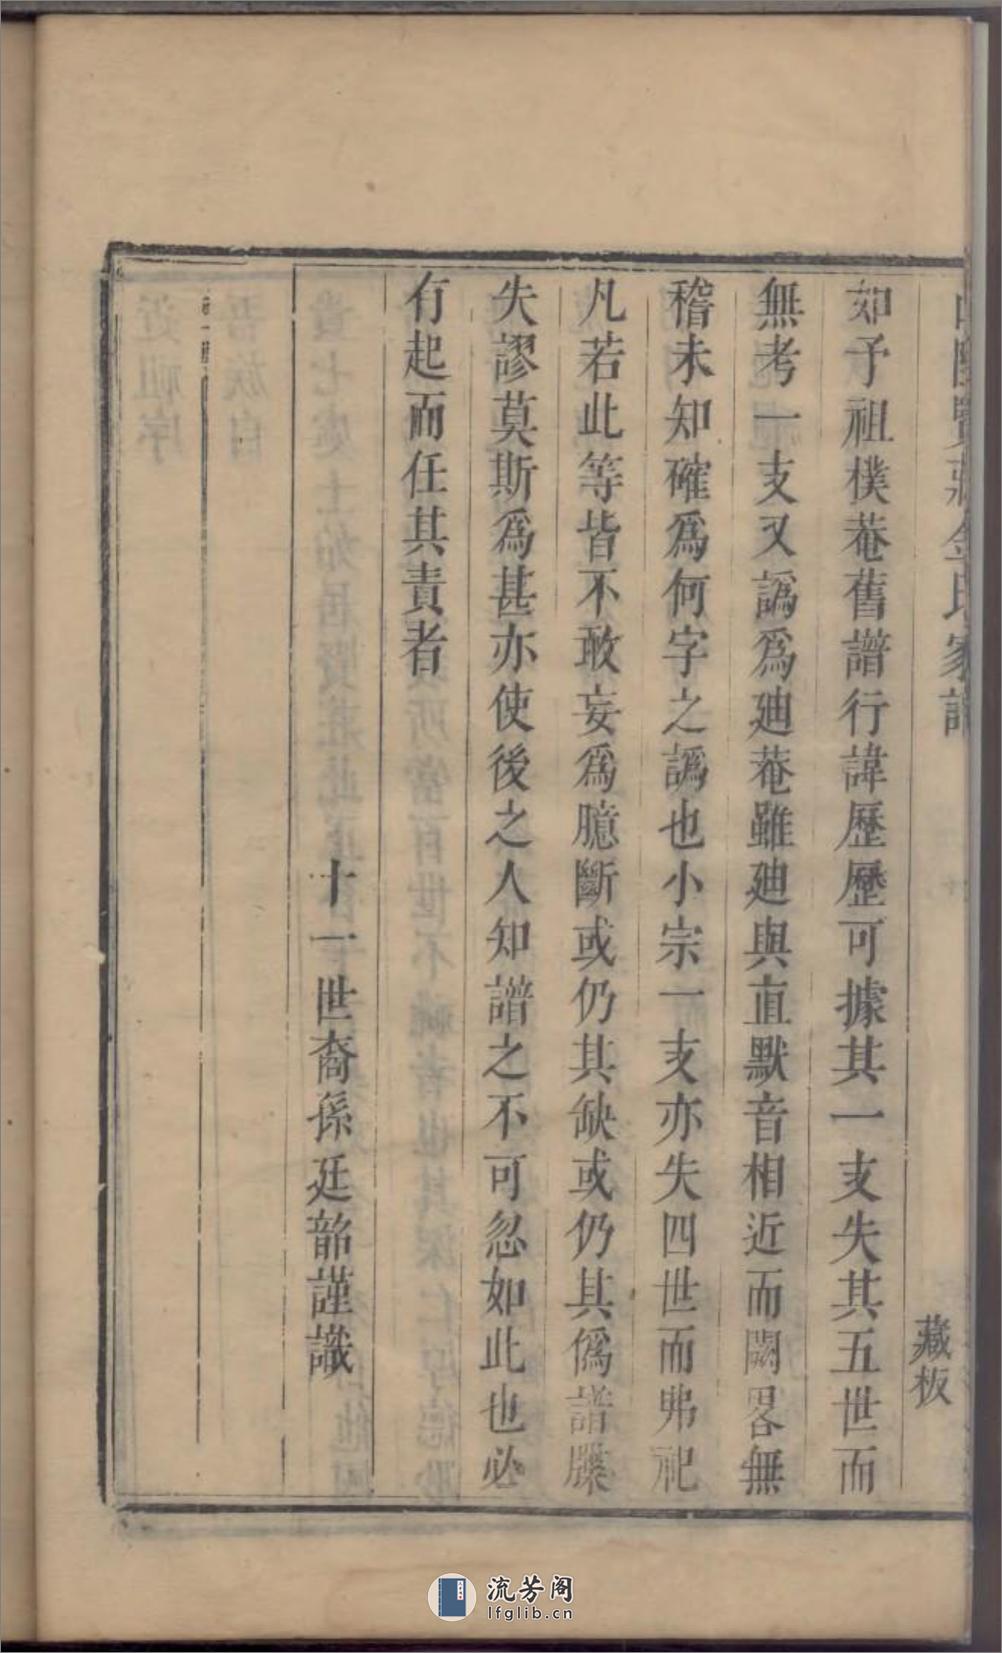 賢莊金氏家譜
藏板
如予祖樸菴舊譜行諱歷歷可據其一支失其五世而
無考一支又譌爲廸菴雖廸與直默音相近而闕畧無
稽未知確爲何字之譌也小宗一支亦失四世而弗祀
凡若此等皆不敢妄爲臆斷或仍其缺或仍其僞譜牒
失謬莫斯爲甚亦使後之人知譜之不可忽如此也必
有起而任其責者
十一世裔孫廷韶謹識
流芳阁
lfglib.cn